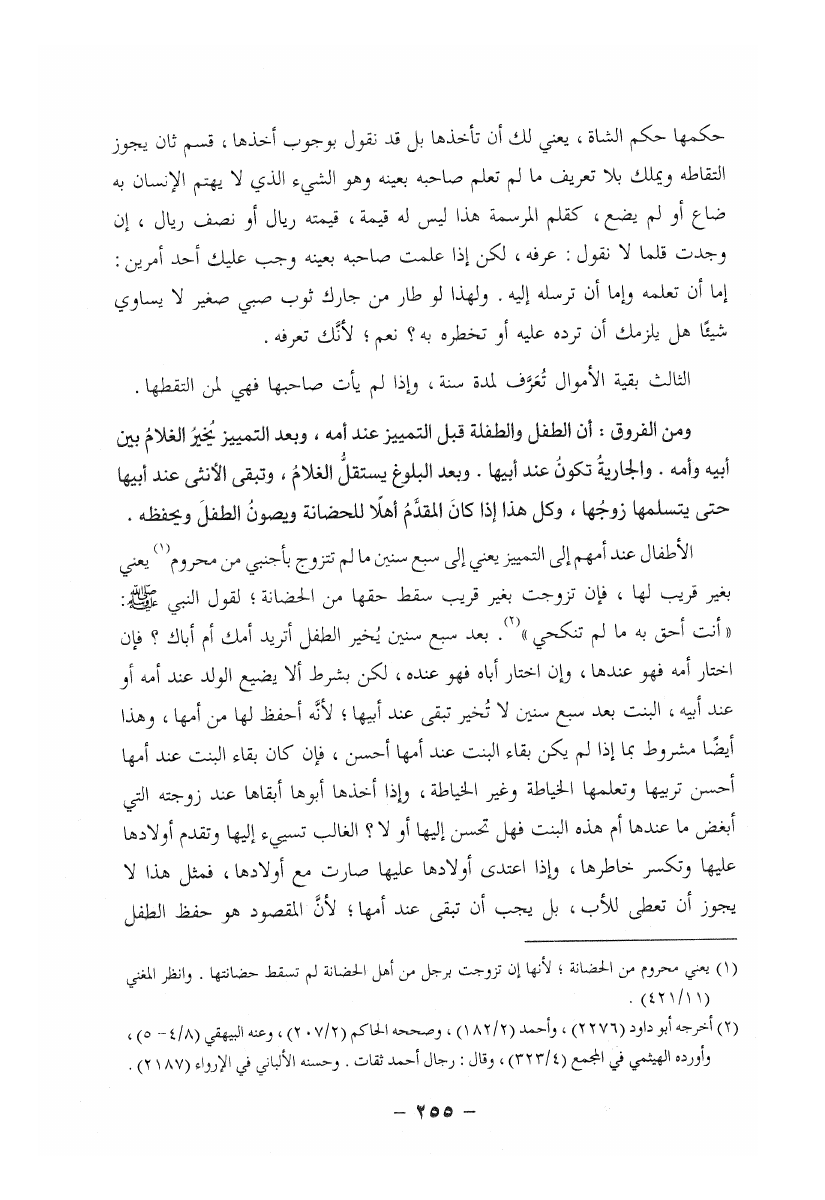 حكمها حكم الشاة ، يعني لك أن تأخذها بل قد نقول بوجوب أخذها ، قسم ثان يجوز
التقاطه ويملك بلا تعريف ما لم تعلم صاحبه بعينه وهو الشيء الذي لا يهتم الإنسان به
ضاع أو لم يضع ، كقلم المرسمة هذا ليس له قيمة ، قيمته ريال أو نصف ريال ، إن
وجدت قلما لا نقول : عرفه ، لكن إذا علمت صاحبه بعينه وجب عليك أحد أمرين :
إما أن تعلمه وإما أن ترسله إليه . ولهذا لو طار من جارك ثوب صبي صغير لا يساوي
شيئًا هل يلزمك أن ترده عليه أو تخطره به ؟ نعم ؛ لأنَّك تعرفه .
الثالث بقية الأموال تُعَرَّف لمدة سنة ، وإذا لم يأت صاحبها فهي لمن التقطها .
ومن الفروق : أن الطفل والطفلة قبل التمييز عند أمه ، وبعد التمييز يُخيرُ الغلامُ بين
أبيه وأمه . والجاريةُ تكونُ عند أبيها . وبعد البلوغ يستقلُّ الغلامُ ، وتبقى الأنثى عند أبيها
حتى يتسلمها زوجُها ، وكل هذا إذا كانَ المقدَّمُ أهلًا للحضانة ويصونُ الطفلَ ويحفظه .
الأطفال عند أمهم إلى التمييز يعني إلى سبع سنين ما لم تتزوج بأجنبي من محروم(١) يعني
بغير قريب لها ، فإن تزوجت بغير قريب سقط حقها من الحضانة ؛ لقول النبي ﷺ :
« أنت أحق به ما لم تنكحي »(٢). بعد سبع سنين يُخير الطفل أتريد أمك أم أباك ؟ فإن
اختار أمه فهو عندها ، وإن اختار أباه فهو عنده ، لكن بشرط ألا يضيع الولد عند أمه أو
عند أبيه ، البنت بعد سبع سنين لا تُخير تبقى عند أبيها ؛ لأنَّه أحفظ لها من أمها ، وهذا
أيضًا مشروط بما إذا لم يكن بقاء البنت عند أمها أحسن ، فإن كان بقاء البنت عند أمها
أحسن تربيها وتعلمها الخياطة وغير الخياطة ، وإذا أخذها أبوها أبقاها عند زوجته التي
أبغض ما عندها أم هذه البنت فهل تحسن إليها أو لا ؟ الغالب تسييء إليها وتقدم أولادها
عليها وتكسر خاطرها ، وإذا اعتدى أولادها عليها صارت مع أولادها ، فمثل هذا لا
يجوز أن تعطى للأب ، بل يجب أن تبقى عند أمها ؛ لأنَّ المقصود هو حفظ الطفل
(١) يعني محروم من الحضانة ؛ لأنها إن تزوجت برجل من أهل الحضانة لم تسقط حضانتها . وانظر المغني
(٤٢١/١١) .
(٢) أخرجه أبو داود (٢٢٧٦) ، وأحمد (١٨٢/٢) ، وصححه الحاكم (٢٠٧/٢) ، وعنه البيهقي (٤/٨ – ٥) ،
وأورده الهيثمي في المجمع (٣٢٣/٤) ، وقال : رجال أحمد ثقات . وحسنه الألباني في الإرواء (٢١٨٧) .
– ٢٥٥ –